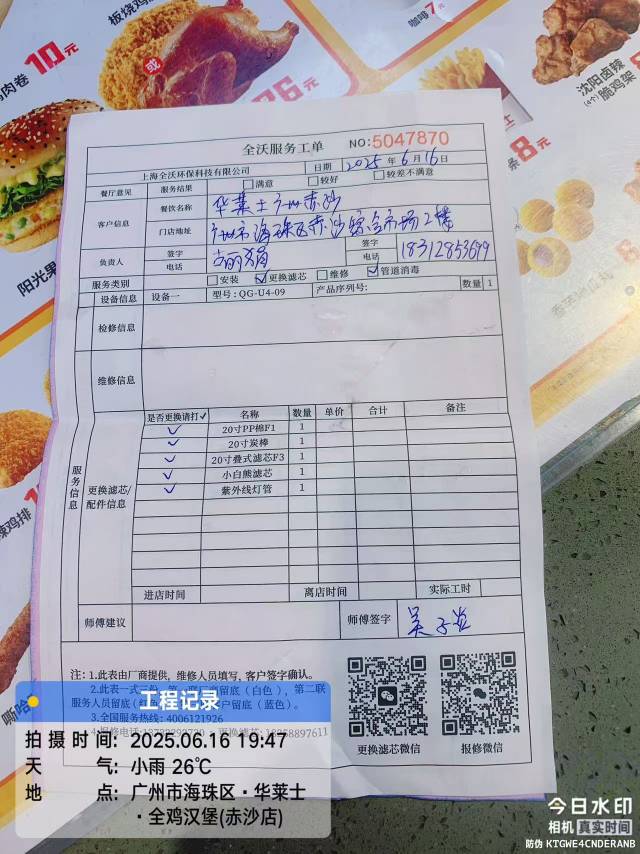 板烧鸡
咖啡7元
肉卷
10元
或
26元
沈阳卤辣
(4个)脆鸡架
8元
条8元
阳光果
辣鸡排
全沃服务工单
NO:5047870
上海全沃环保科技有限公司 日期 2025年6月16日
餐厅意见 服务结果 满意 较好 较差不满意
客户信息 餐饮名称 华莱士广州赤沙
门店地址 广州市海珠区赤沙综合市场2楼
负责人 签字 签字
电话 电话 18312853699
服务类别 安装 ✓更换滤芯 维修 ✓管道消毒
设备信息 设备一 型号:QG-U4-09 产品序列号: 数量 1
检修信息
维修信息
服务信息
更换滤芯/配件信息
是否更换请打✓ 名称 数量 单价 合计 备注
✓ 20寸PP棉F1 1
✓ 20寸炭棒 1
✓ 20寸叠式滤芯F3 1
✓ 小白熊滤芯 1
✓ 紫外线灯管 1
进店时间 离店时间 实际工时
师傅建议 师傅签字
注:1.此表由厂商提供,维修人员填写,客户签字确认。
2.此表一式三份,第一联厂商留底(白色),第二联
服务人员留底(红色),第三联客户留底(蓝色)。
3.全国服务热线:4006121926
更换滤芯微信 报修微信
工程记录
拍摄时间:2025.06.16 19:47
天气:小雨 26℃
地点:广州市海珠区·华莱士
·全鸡汉堡(赤沙店)
今日水印
相机 真实时间
防伪 KTGWE4CNDERANB